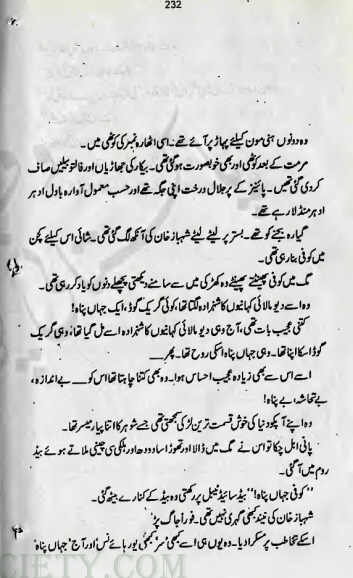 232
وہ دونوں ہنی مون کیلئے پہاڑ پر آئے تھے۔ اسی اٹھارہ نمبر کی کوٹھی میں۔
مرمت کے بعد کوٹھی اور بھی خوبصورت ہو گئی تھی۔ بیکار کی جھاڑیاں اور فالتو بیلیں صاف
کر دی گئی تھیں۔ پائینز کے پر جلال درخت اپنی جگہ تھے اور حسب معمول آوارہ بادل ادہر
ادہر منڈلا رہے تھے۔
گیارہ بجنے کو تھے۔ بستر پر لیٹے لیٹے شہباز خان کی آنکھ لگ گئی تھی۔ شائی اس کیلئے کچن
میں کوفی بنا رہی تھی۔
مگ میں کوفی پھینٹتے پھینٹتے وہ کھڑکی میں سے سامنے دیکھتی پچھلے دنوں کو یاد کر رہی تھی۔
وہ اسے دیو مالائی کہانیوں کا شہزادہ لگتا تھا، کوئی گریک گوڈ، ایک جہاں پناہ!
کتنی عجیب بات تھی، آج وہی دیو مالائی کہانیوں کا شہزادہ اسے مل گیا تھا، وہی گریک
گوڈ اسکا اپنا تھا۔ وہی جہاں پناہ اسکی روح تھا۔ پھر۔۔۔
اسے اس سے بھی زیادہ عجیب احساس ہوا۔ وہ بھی کتنا چاہتا تھا اس کو۔۔۔ بے اندازہ،
بے تحاشہ، بے پناہ!
وہ اپنے آپکو دنیا کی خوش قسمت ترین لڑکی سمجھتی تھی جسے شوہر کا اتنا پیار میسر تھا۔
پانی ابل چکا تو اس نے مگ میں ڈالا اور تھوڑا سا دودھ اور ہلکی سی چینی ملاتے ہوئے بیڈ
روم میں آ گئی۔
’’کوفی جہاں پناہ!‘‘ بیڈ سائیڈ ٹیبل پر رکھتی وہ بیڈ کے کنارے بیٹھ گئی۔
شہباز خان کی نیند کبھی گہری نہیں تھی۔ فوراً جاگ پڑا۔
اسکے تخاطب پر مسکرا دیا۔ وہ یوں ہی اسے کبھی ’سر‘ کبھی ’یور ہائے نس‘ اور آج ’جہاں پناہ‘
CIETY.COM